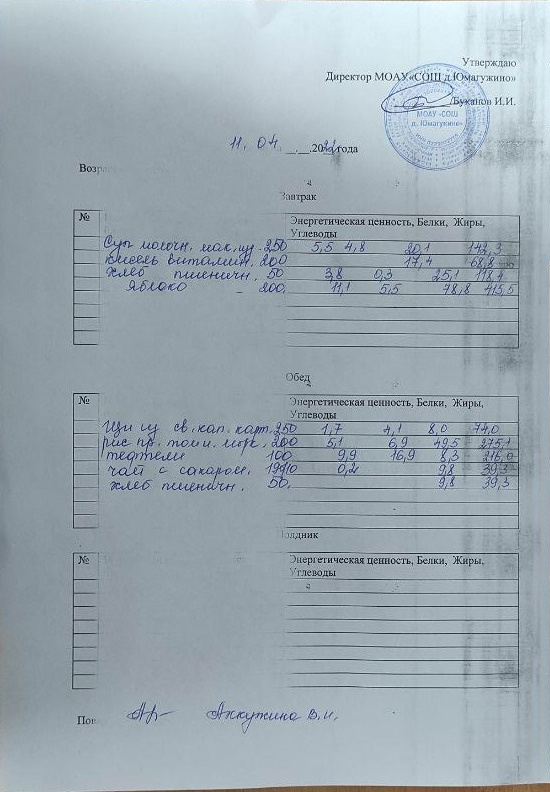 Утверждаю
Директор МОАУ «СОШ д.Юмагужино»
/Буканов И.И.
МОАУ «СОШ
д. Юмагужино»
11. 04. __.__.2022года
Возра
Завтрак
№ Энергетическая ценность, Белки, Жиры,
Углеводы
Суп молочн. мак. изд. 250 5,5 4,8 20,1 142,3
Кисель витамин. 200 17,4 68,8
Хлеб пшеничн. 50 3,8 0,3 25,1 118,4
Яблоко 200. 11,1 5,5 78,8 415,5
Обед
№ Энергетическая ценность, Белки, Жиры,
Углеводы
Щи из св. кап. карт. 250 1,7 4,1 8,0 74,0
рис пр. 200 5,1 6,9 49,5 275,1
тефтели 100 9,9 16,9 8,3 216,0
чай с сахаром. 0,2 9,8 39,3
хлеб пшеничн. 50. 9,8 39,3
лдник
№ Энергетическая ценность, Белки, Жиры,
Углеводы
Пов Аккужина В.И.